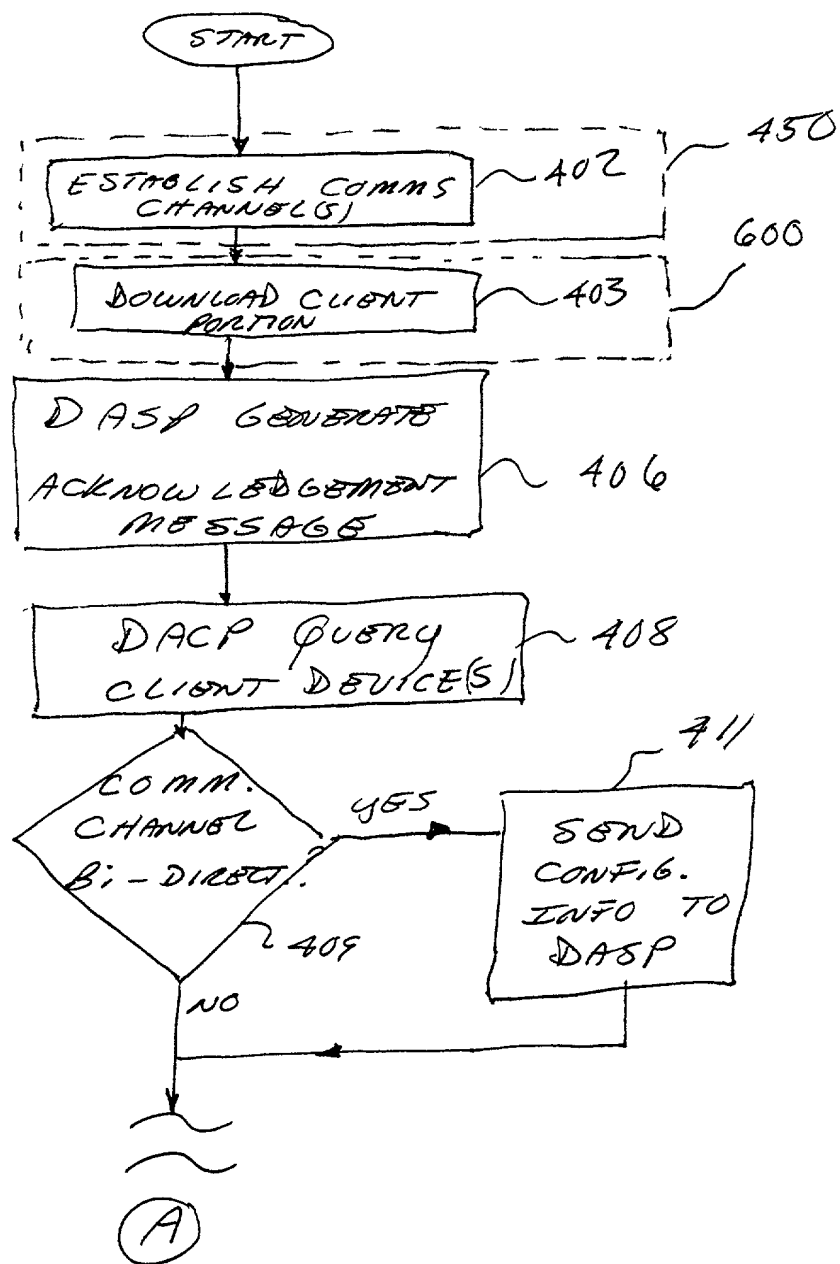 START
450
ESTABLISH COMMS
CHANNEL(S)
402
600
DOWNLOAD CLIENT
PORTION
403
DASP GENERATE
ACKNOWLEDGEMENT
MESSAGE
406
DACP QUERY
CLIENT DEVICE(S)
408
COMM.
CHANNEL
Bi-DIRECT.
409
YES
411
SEND
CONFIG.
INFO TO
DASP
NO
A